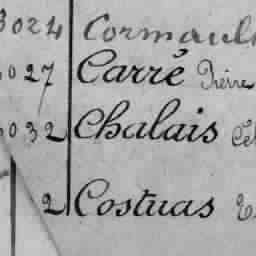 3024 Cormaul
027 Carré Pierre
032 Chalais Cel
2 Costuas